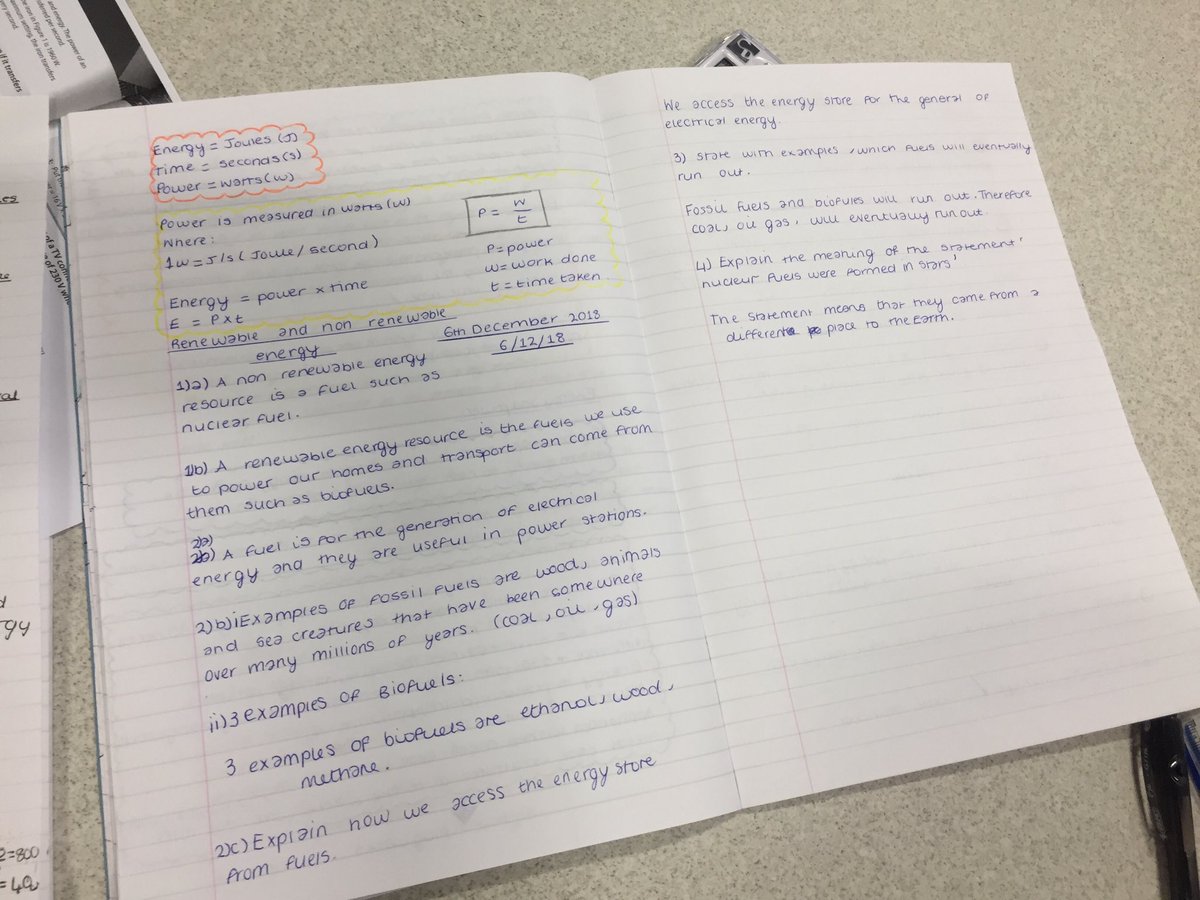 and energy. The power of an
sferred per second.
the iron in Figure 1 is 1960 W.
ximum setting, the iron transfers
ery second.
if it transfers
of a TV
of 230 V
gy
2=800
Energy = Joules (J)
Time = seconds (s)
Power = watts (w)
Power is measured in watts (w)
Where:
1w = J/s (Joule/second)
Energy = power x time
E = P x t
P = w/t
P = power
w = work done
t = time taken
Renewable and non renewable
energy
6th December 2018
6/12/18
1)a) A non renewable energy
resource is a fuel such as
nuclear fuel.
1b) A renewable energy resource is the fuels we use
to power our homes and transport can come from
them such as biofuels.
2)a)
A fuel is for the generation of electrical
energy and they are useful in power stations.
2)b)i Examples of fossil fuels are wood, animals
and sea creatures that have been somewhere
over many millions of years. (coal, oil, gas)
ii) 3 examples of Biofuels:
3 examples of biofuels are ethanol, wood,
methane.
2)c) Explain how we access the energy store
from fuels.
We access the energy store for the general of
electrical energy.
3) State with examples, which fuels will eventually
run out.
Fossil fuels and biofules will run out. Therefore
coal, oil gas, will eventually run out.
4) Explain the meaning of the statement '
nuclear fuels were formed in stars'
The statement means that they came from a
different place to the Earth.